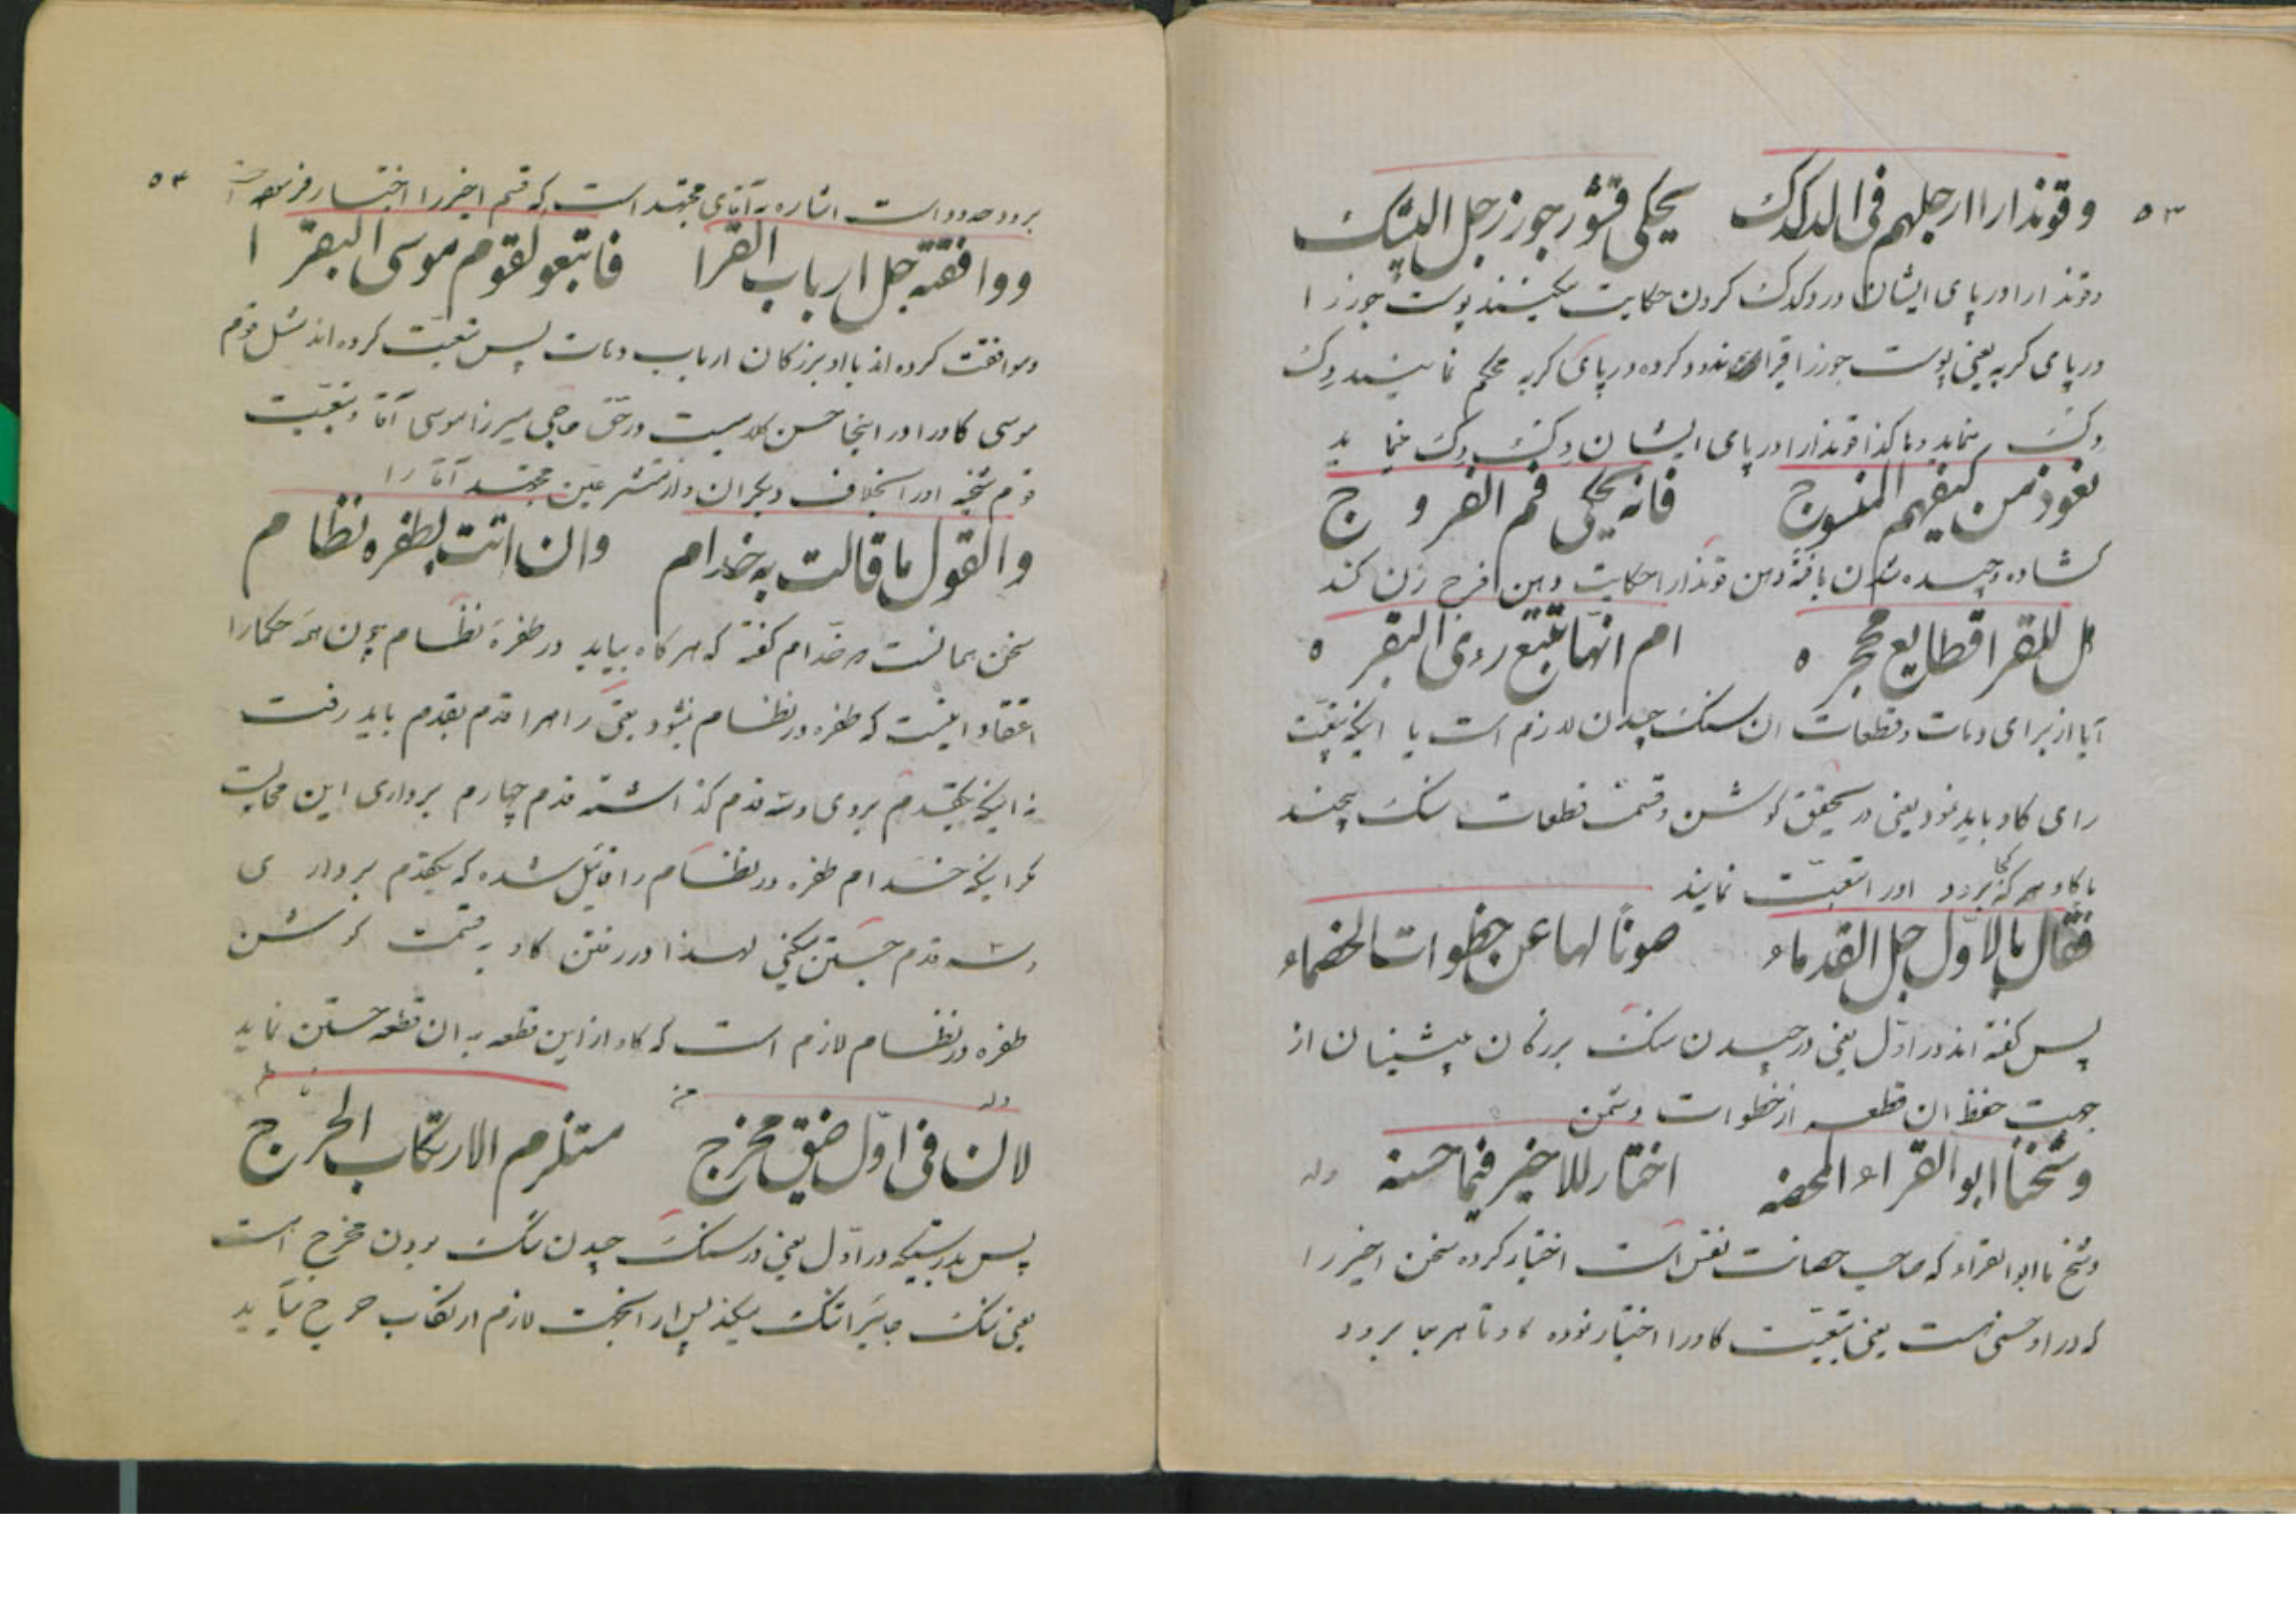 ۵۳
وقوندارا ارجلهم فی الدکدک یحکی قشور جوز رجل الپیک
وقوندارا در پای ایشان در دکدک کردن حکایت میکنند پوست جوز را
در پای گربه یعنی پوست جوز را قیر اندود کرده در پای گربه محکم نمایند دک
دک مینماید وهاکذا قوندارا در پای ایشان دک دک مینماید
نعوذ من کیفهم المنسوج فانه یحکی فم الفروج
گشاده و چیده شدن بافته دهن قوندارا حکایت دهن فرج زن کند
هل للقرا قطایع محجره ام انها تتبع رءی البقره
آیا از برای دهات و قطعات آن سنگ چیدن لازم است یا اینکه تبعیت
رای گاو باید نمود یعنی در تحقیق کوشن و قسمت قطعات سنگ بچینند
یا گاو هر کجا برود او را تبعیت نمایند
فقال بالاول جل القدماء صونا لها عن خطوات الخصماء
پس گفته اند در اول یعنی در چیدن سنگ بزرگان پیشینان از
جهت حفظ آن قطعه از خطوات دشمن
وشیخنا ابو القراء المحصنه اختار للاخیر فیما حسنه وله
وشیخ ما ابو القراء که صاحب حصانت نفس است اختیار کرده سخن اخیر را
که در او حسنی هست یعنی تبعیت گاو را اختیار نموده گاو تا هر جا برود
۵۴
برود حدود است اشاره به آقای مجتهد است که قسم اخیر را اختیار فرموده است
ووافقته جل ارباب القرا فاتبعو لقوم موسی البقرا
وموافقت کرده اند با او بزرگان ارباب دهات پس تبعیت کرده اند مثل قوم
موسی گاو را در اینجا حسن کلامیست در حق حاجی میرزا موسی آقا و تبعیت
قوم شیخیه او را بخلاف دیگران واز متشرعین مجتهد آقا را
والقول ما قالت به خدام وان اتت بطفره نظام
سخن همانست که خدام گفته که هر گاه بیاید در طفره نظام چون همه حکما را
اعتقاد اینست که طفره در نظام نمیشود یعنی راه را قدم بقدم باید رفت
نه اینکه یکقدم بروی و سه قدم گذاشته قدم چهارم برداری این محالیست
مگر اینکه خدام طفره در نظام را قایل شده که یکقدم برداری
و سه قدم جستن میکنی لهذا در رفتن گاو به قسمت کوشن
طفره در نظام لازم است که گاو از این قطعه به آن قطعه جستن نماید
وله
لان فی اول ضیق مخرج مستلزم الارتکاب الحرج
پس بدرستیکه در اول یعنی در سنگ چیدن تنگ بودن مخرج است
یعنی تنگ جایرا تنگ میکند پس از اینجهت لازم ارتکاب حرج میآید